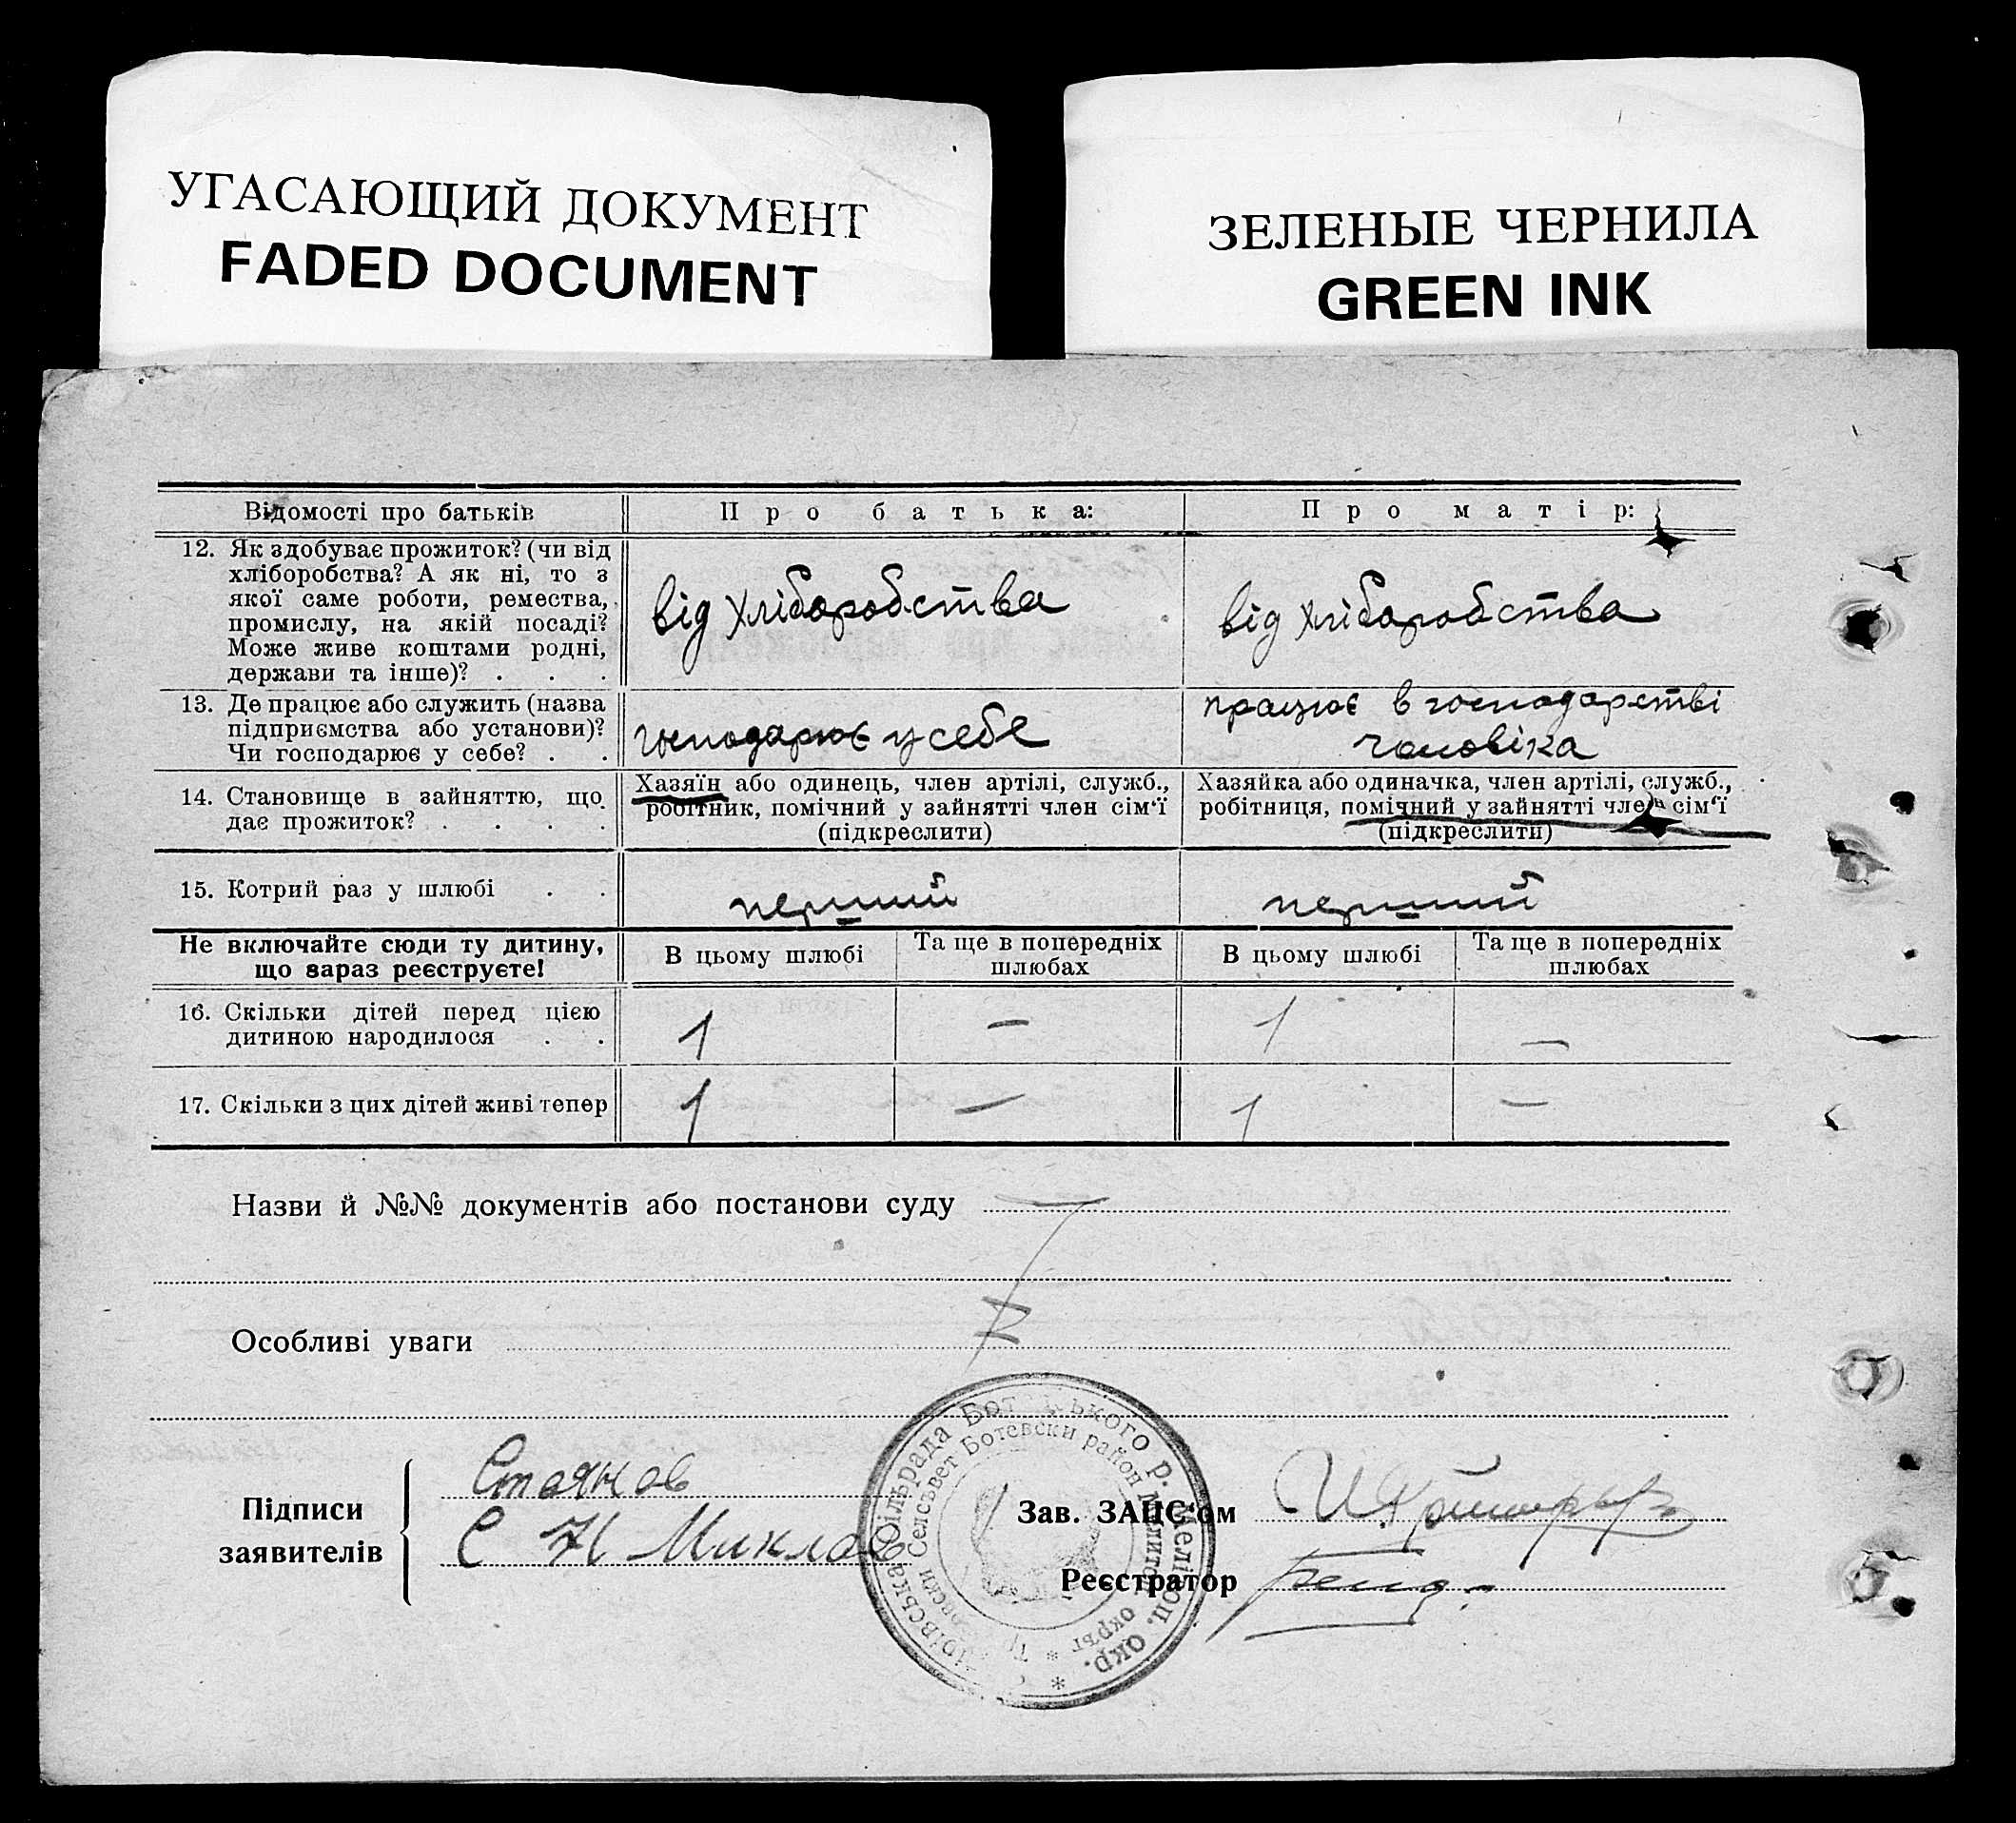 УГАСАЮЩИЙ ДОКУМЕНТ
FADED DOCUMENT
ЗЕЛЕНЫЕ ЧЕРНИЛА
GREEN INK
Відомості про батьків
Про батька:
Про матір:
12. Як здобуває прожиток? (чи від
хліборобства? А як ні, то з
якої саме роботи, ремества,
промислу, на якій посаді?
Може живе коштами родні,
держави та інше)? . . .
від хліборобства
від хліборобства
13. Де працює або служить (назва
підприємства або установи)?
Чи господарює у себе? . .
господарює у себе
працює в господарстві
чоловіка
14. Становище в зайняттю, що
дає прожиток? . . . .
Хазяїн або одинець, член артілі, служб.,
робітник, помічний у зайнятті член сім'ї
(підкреслити)
Хазяйка або одиначка, член артілі, служб.,
робітниця, помічний у зайнятті член сім'ї
(підкреслити)
15. Котрий раз у шлюбі . .
перший
перший
Не включайте сюди ту дитину,
що зараз реєструєте!
В цьому шлюбі
Та ще в попередніх
шлюбах
В цьому шлюбі
Та ще в попередніх
шлюбах
16. Скільки дітей перед цією
дитиною народилося . .
1
—
1
—
17. Скільки з цих дітей живі тепер
1
—
1
—
Назви й №№ документів або постанови суду
Особливі уваги
Підписи
заявителів
Стоянов
С Н Миклов
Зав. ЗАГС'ом
Реєстратор
сільрада Бот ського р. Меліоп. окр.
Селсъвет Ботевски район Мелитоп. окръг